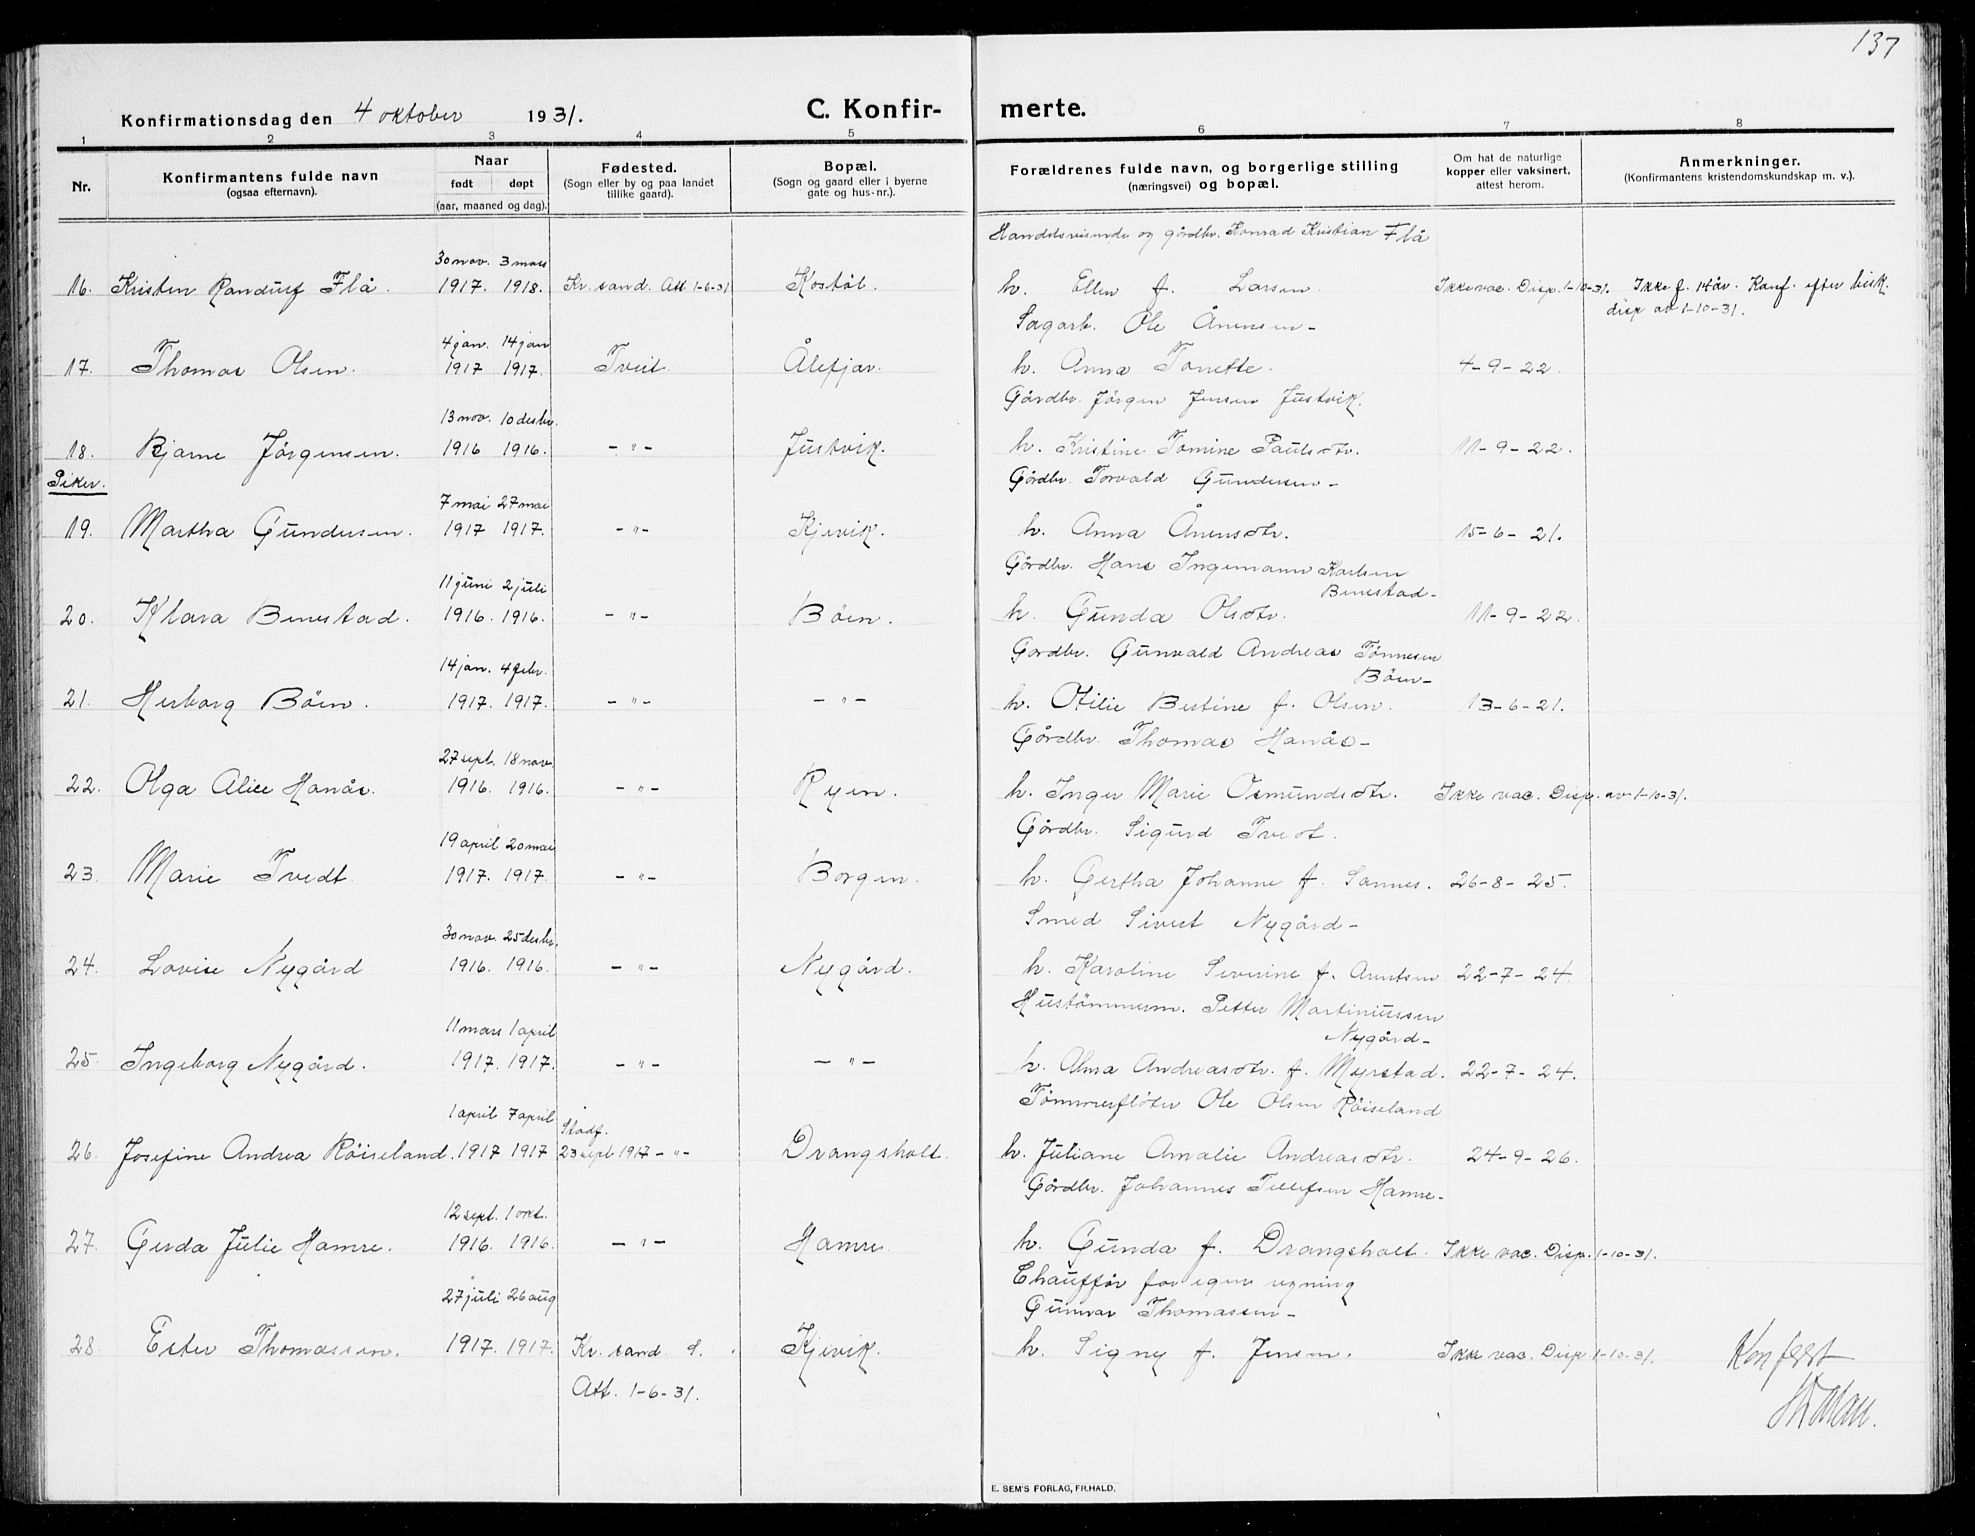 137
Konfirmationsdag den 4 oktober 1931.
C. Konfirmerte.
1 2 3 4 5 6 7 8
Nr.
Konfirmantens fulde navn
(ogsaa efternavn).
Naar
født døpt
(aar, maaned og dag).
Fødested.
(Sogn eller by og paa landet
tillike gaard).
Bopæl.
(Sogn og gaard eller i byerne
gate og hus-nr.).
Forældrenes fulde navn, og borgerlige stilling
(næringsvei) og bopæl.
Om hat de naturlige
kopper eller vaksinert,
attest herom.
Anmerkninger.
(Konfirmantens kristendomskundskap m. v.).
Handelsreisende og gårdbr. Konrad Kristian Flå
30 nov. 3 mars
16. Kristen Randulf Flå. 1917. 1918. Kr.sand. Att 1-6-31 Kostøl. h. Ellen f. Larsen. Ikke vac. Disp. 1-10-31. Ikke f. 14 år. Konf. efter bisk.
disp av 1-10-31.
Sagarb. Ole Ånensen-
4 jan. 14 jan
17. Thomas Olsen. 1917 1917. Tveit. Ålefjær. h. Anna Tonette. 4-9-22.
Gårdbr. Jørgen Jensen Justvik.
13 nov. 10 desbr.
18. Bjarne Jørgensen. 1916 1916. -"- Justvik. h. Kristine Tomine Paulsdtr. 11-9-22.
Piker.
Gårdbr. Torvald Gundersen-
7 mai 27 mai
19. Martha Gundersen. 1917 1917. -"- Kjevik. h. Anna Ånensdtr. 15-6-21.
Gårdbr. Hans Ingemann Karlsen
Benestad-
11 juni 2 juli
20. Klara Benestad. 1916. 1916. -"- Bøen. h. Gunda Olsdtr. 11-9-22.
Gårdbr. Gunvald Andreas Tønnesen
Bøen-
14 jan. 4 febr.
21. Herborg Bøen. 1917. 1917. -"- -"- h. Otilie Bestine f. Olsen. 13-6-21.
Gårdbr. Thomas Hanås-
27 sept. 18 nov.
22. Olga Alice Hanås. 1916. 1916. -"- Ryen. h. Inger Marie Osmundsdtr. Ikke vac. Disp. av 1-10-31.
Gårdbr. Sigurd Tvedt.
19 april 20 mai
23. Marie Tvedt. 1917. 1917. -"- Borgen. h. Gertha Johanne f. Sannes. 26-8-25.
Smed Sivert Nygård-
30 nov. 25 desbr.
24. Lovise Nygård 1916. 1916. -"- Nygård. h. Karoline Severine f. Arntsen 22-7-24.
Hustømmerm. Petter Martiniussen
Nygård-
11 mars 1 april
25. Ingeborg Nygård. 1917. 1917. -"- -"- h. Alma Andreasdtr. f. Myrstad. 22-7-24.
Tømmerfløter Ole Olsen Røiseland
1 april 7 april Stadf.
26. Josefine Andrea Røiseland. 1917 1917 23 sept 1917 -"- Drangsholt. h. Juliane Amalie Andreasdtr. 24-9-26.
Gårdbr. Johannes Tellefsen Hamre-
12 sept. 1 okt.
27. Gerda Julie Hamre. 1916. 1916. -"- Hamre. h. Gunda f. Drangsholt. Ikke vac. Disp. 1-10-31.
Chauffør for egen regning
27 juli 26 aug Gunnar Thomassen-
28. Ester Thomassen. 1917. 1917. Kr.sand d. Kjevik. h. Signy f. Jensen. Ikke vac. Disp 1-10-31.
Att. 1-6-31.
E. SEM'S FORLAG, FR.HALD.